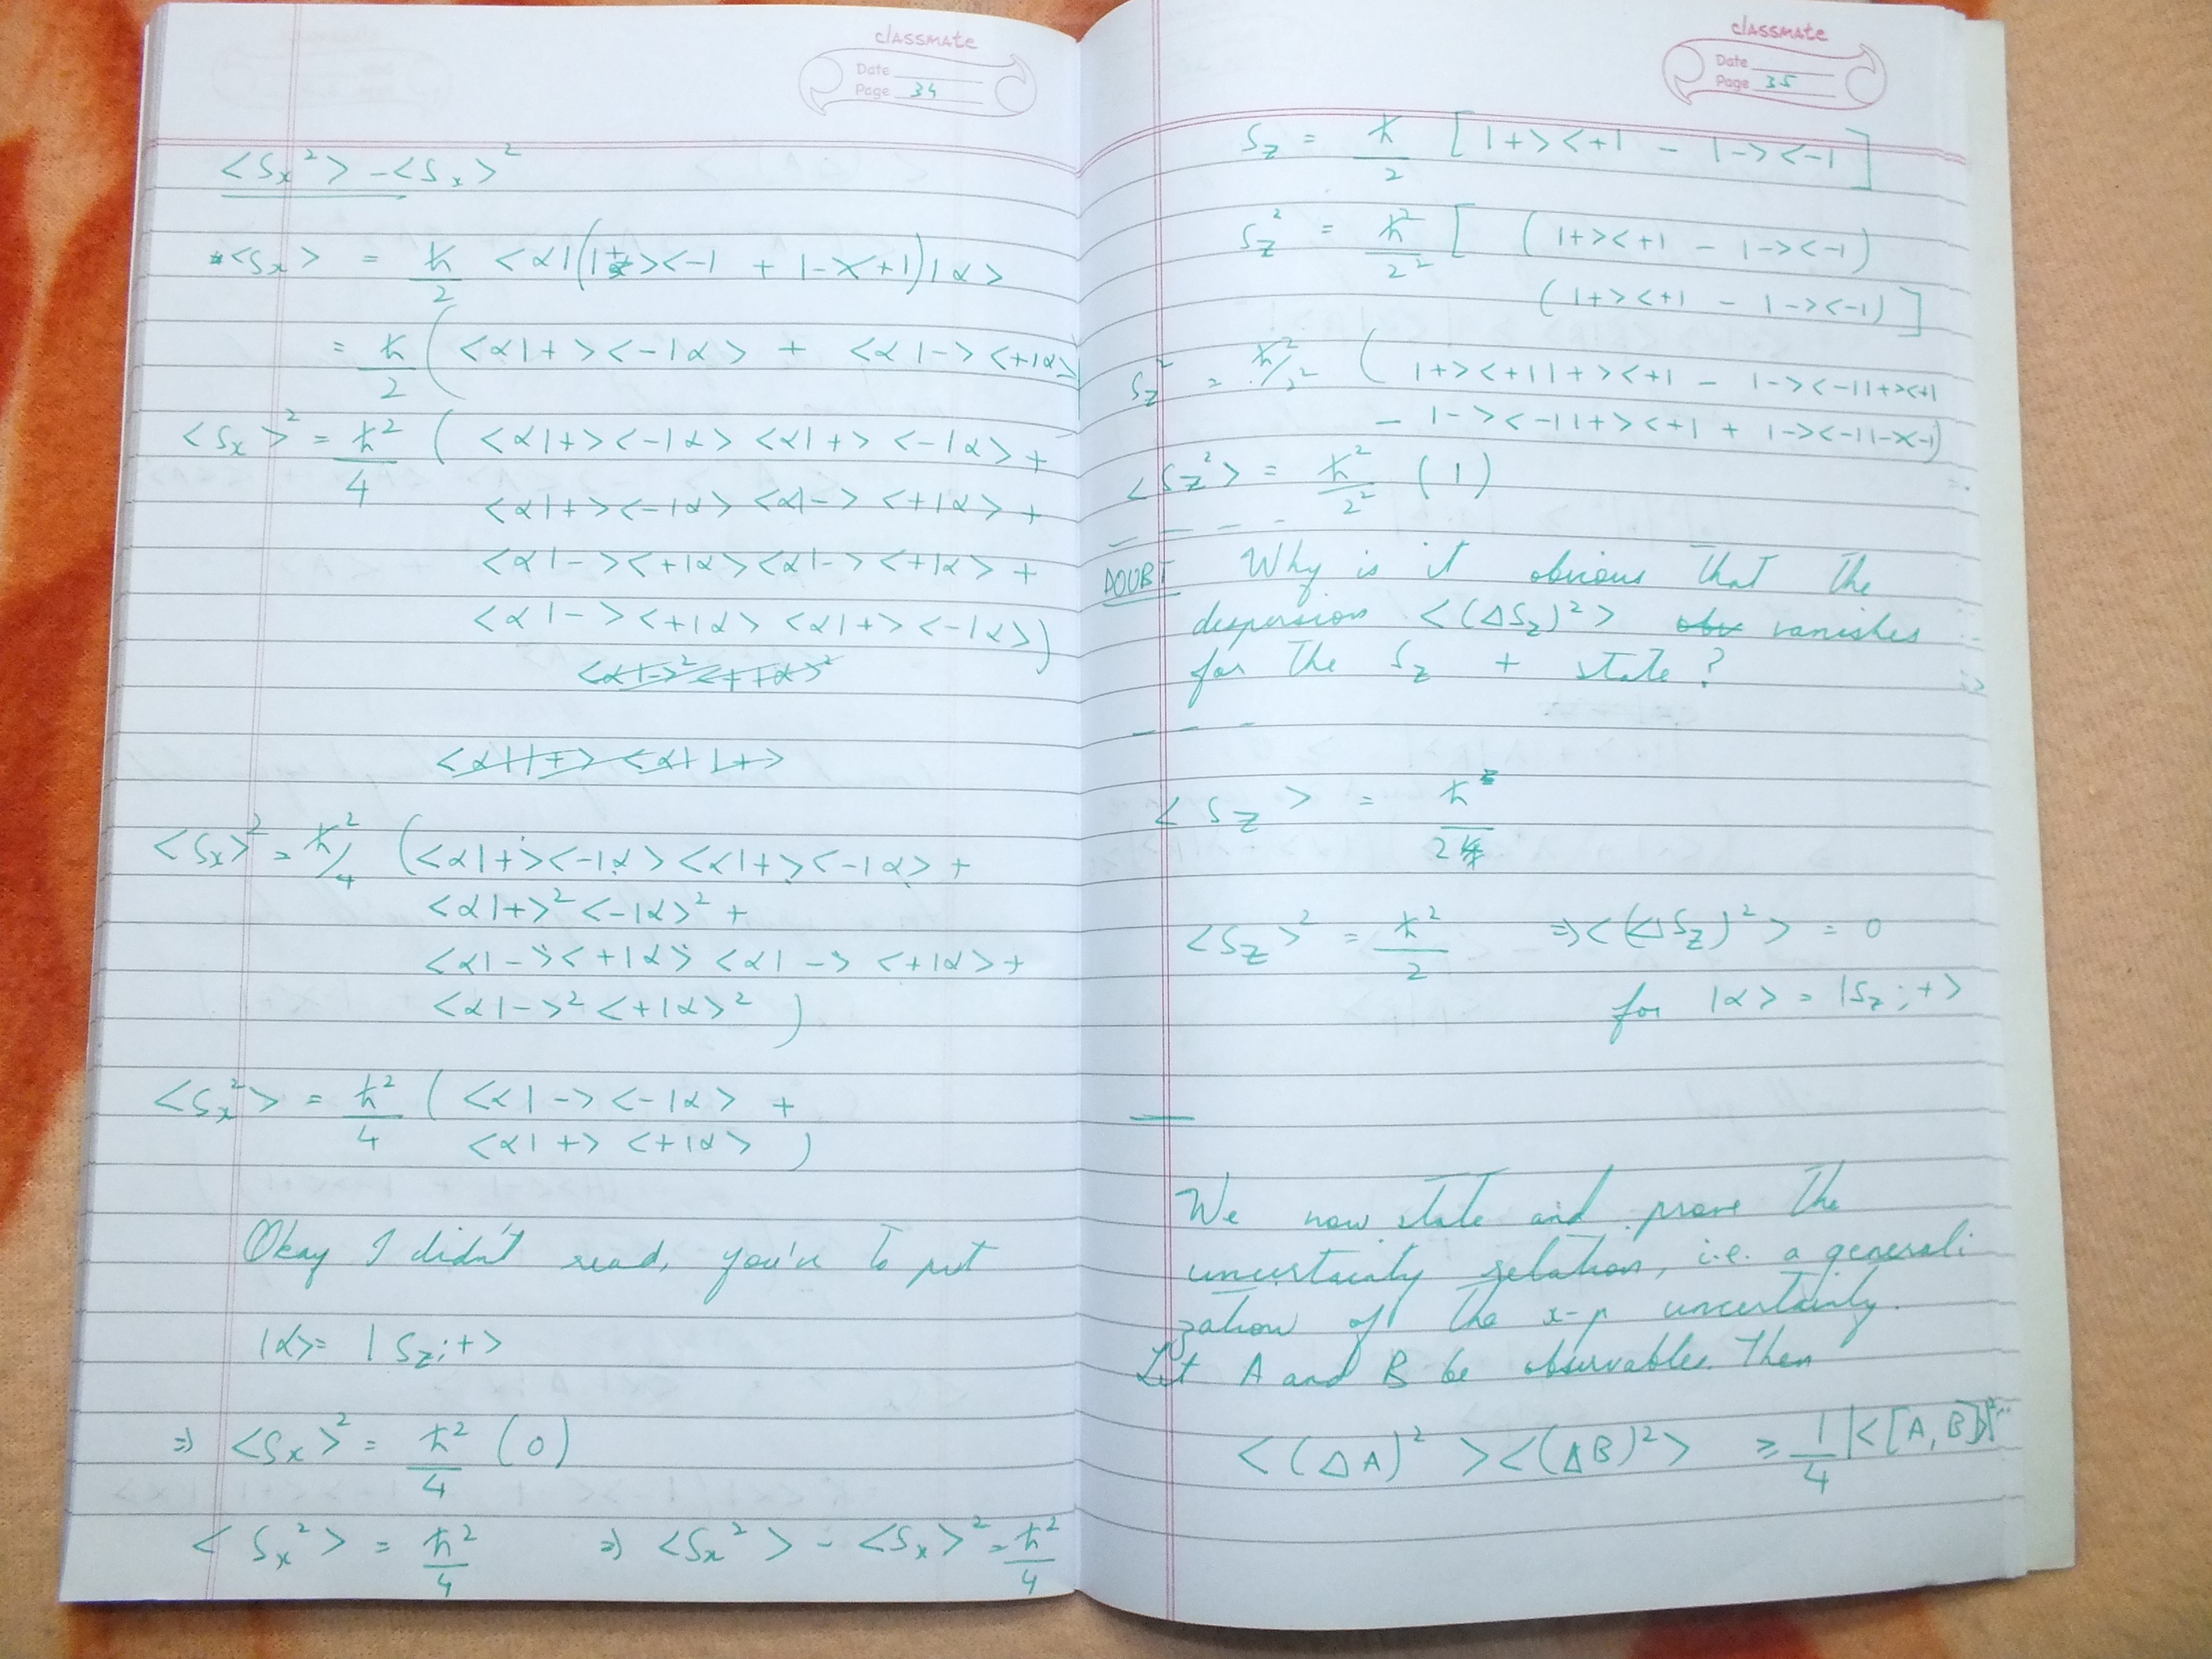 classmate
Date
Page 34
<Sx²> - <Sx>²
<Sx> = ħ/2 <α|(|+><-| + |-><+|)|α>
= ħ/2 ( <α|+><-|α> + <α|-><+|α>
<Sx>² = ħ²/4 ( <α|+><-|α> <α|+> <-|α> +
<α|+><-|α> <α|-> <+|α> +
<α|-><+|α><α|-> <+|α> +
<α|-><+|α> <α|+><-|α>)
<α|->² <+|α>²
<α|+> <α+|+>
<Sx>² = ħ²/4 (<α|+><-|α><α|+><-|α> +
<α|+>² <-|α>² +
<α|-><+|α> <α|-> <+|α> +
<α|->² <+|α>² )
<Sx²> = ħ²/4 ( <α|-><-|α> +
<α|+> <+|α> )
Okay I didn't read, you've to put
|α> = |Sz;+>
⇒ <Sx>² = ħ²/4 (0)
<Sx²> = ħ²/4 ⇒ <Sx²> - <Sx>² = ħ²/4
classmate
Date
Page 35
Sz = ħ/2 [ |+><+| - |-><-| ]
Sz² = ħ²/2² [ ( |+><+| - |-><-| )
( |+><+| - |-><-| ) ]
Sz² = ħ²/2² ( |+><+||+><+| - |-><-||+><+|
- |-><-||+><+| + |-><-||-><-|)
<Sz²> = ħ²/2² (1)
DOUBT Why is it obvious that the
dispersion <(ΔSz)²> obv vanishes
for the Sz + state?
<Sz> = ħ/2
<Sz>² = ħ²/2 ⇒ <(ΔSz)²> = 0
for |α> = |Sz;+>
We now state and prove the
uncertainty relation, i.e. a generali
zation of the x-p uncertainty.
Let A and B be observables. Then
<(ΔA)²><(ΔB)²> ≥ 1/4 |<[A,B]>|²